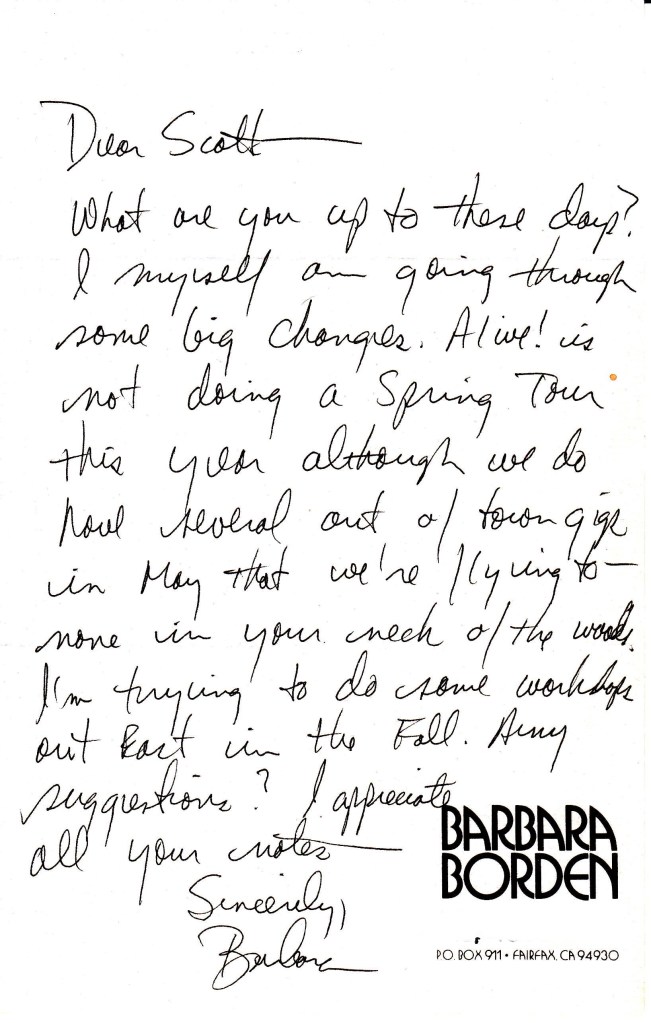 Dear Scott —
What are you up to these days?
I myself am going through
some big changes. Alive! is
not doing a Spring Tour
this year although we do
have several out of town gigs
in May that we're flying to —
none in your neck of the woods.
I'm trying to do some workshops
out East in the Fall. Any
suggestions? I appreciate
all your notes —
Sincerely,
Barbara
BARBARA
BORDEN
P.O. BOX 911 • FAIRFAX, CA 94930